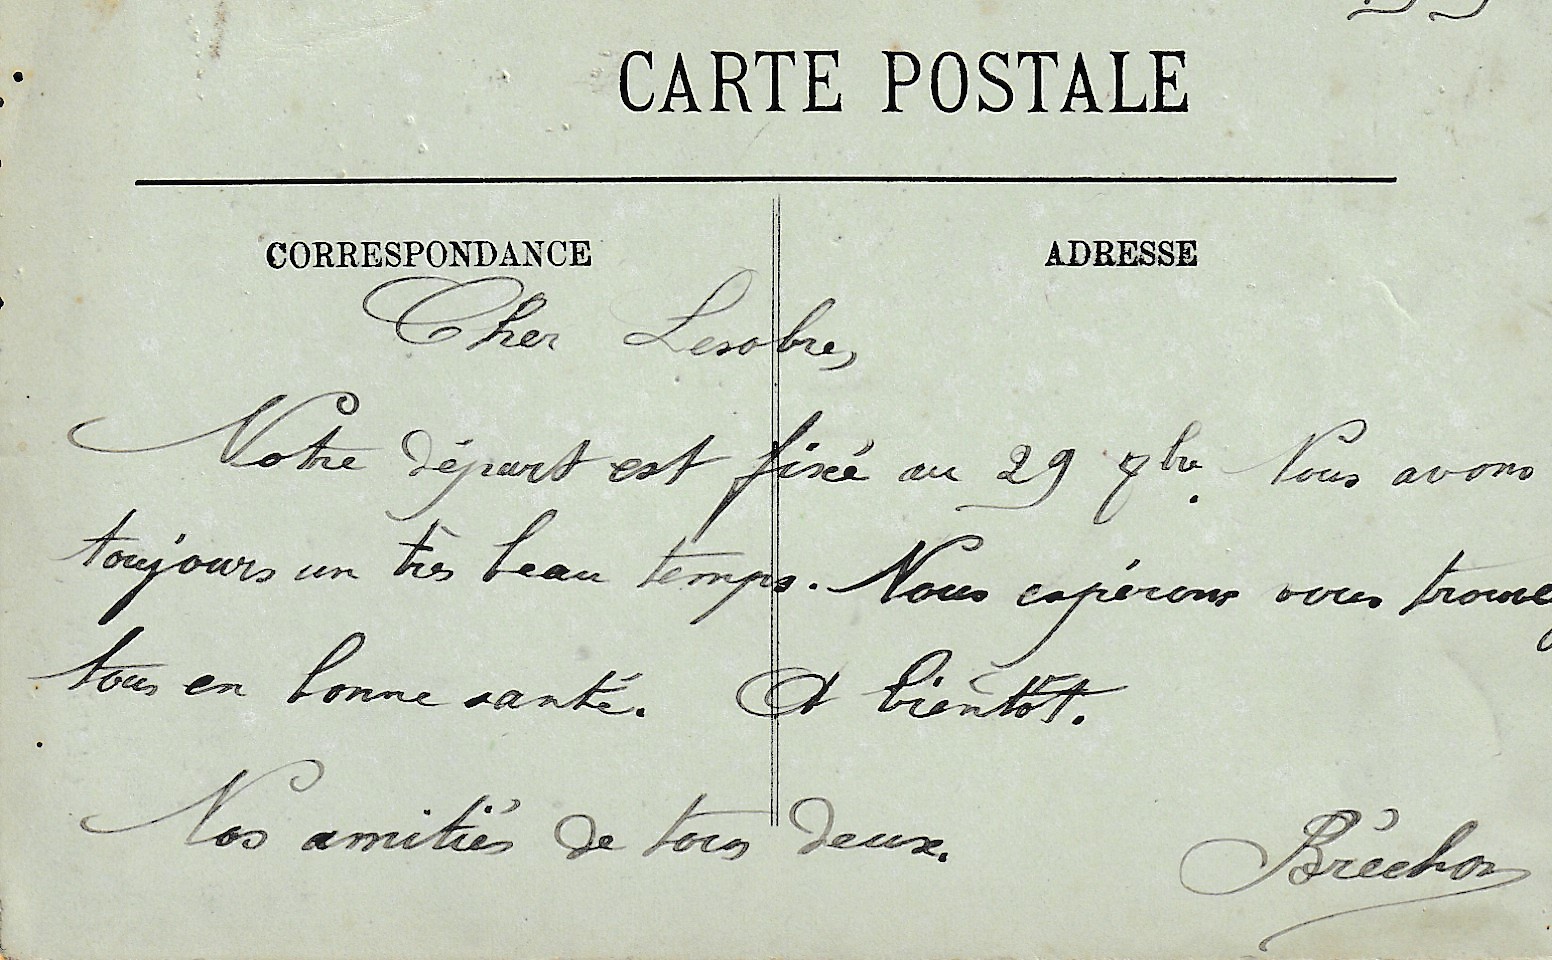 CARTE POSTALE
CORRESPONDANCE
ADRESSE
Cher Lesobre,
Notre départ est fixé au 29 7bre. Nous avons
toujours un très beau temps. Nous espérons vous trouver
tous en bonne santé. A bientôt.
Nos amitiés de tous deux.
Bréchon